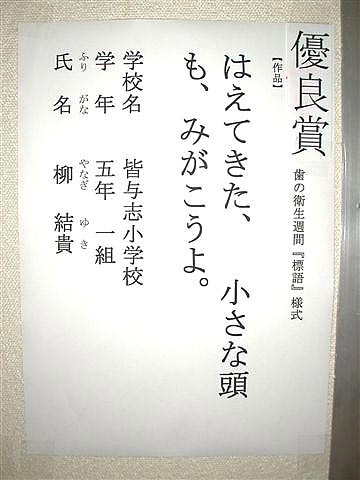 優良賞
歯の衛生週間『標語』様式
【作品】
はえてきた、　小さな頭
も、みがこうよ。
学校名　皆与志小学校
学年　五年一組
ふりがな　やなぎ　ゆき
氏名　柳　結貴